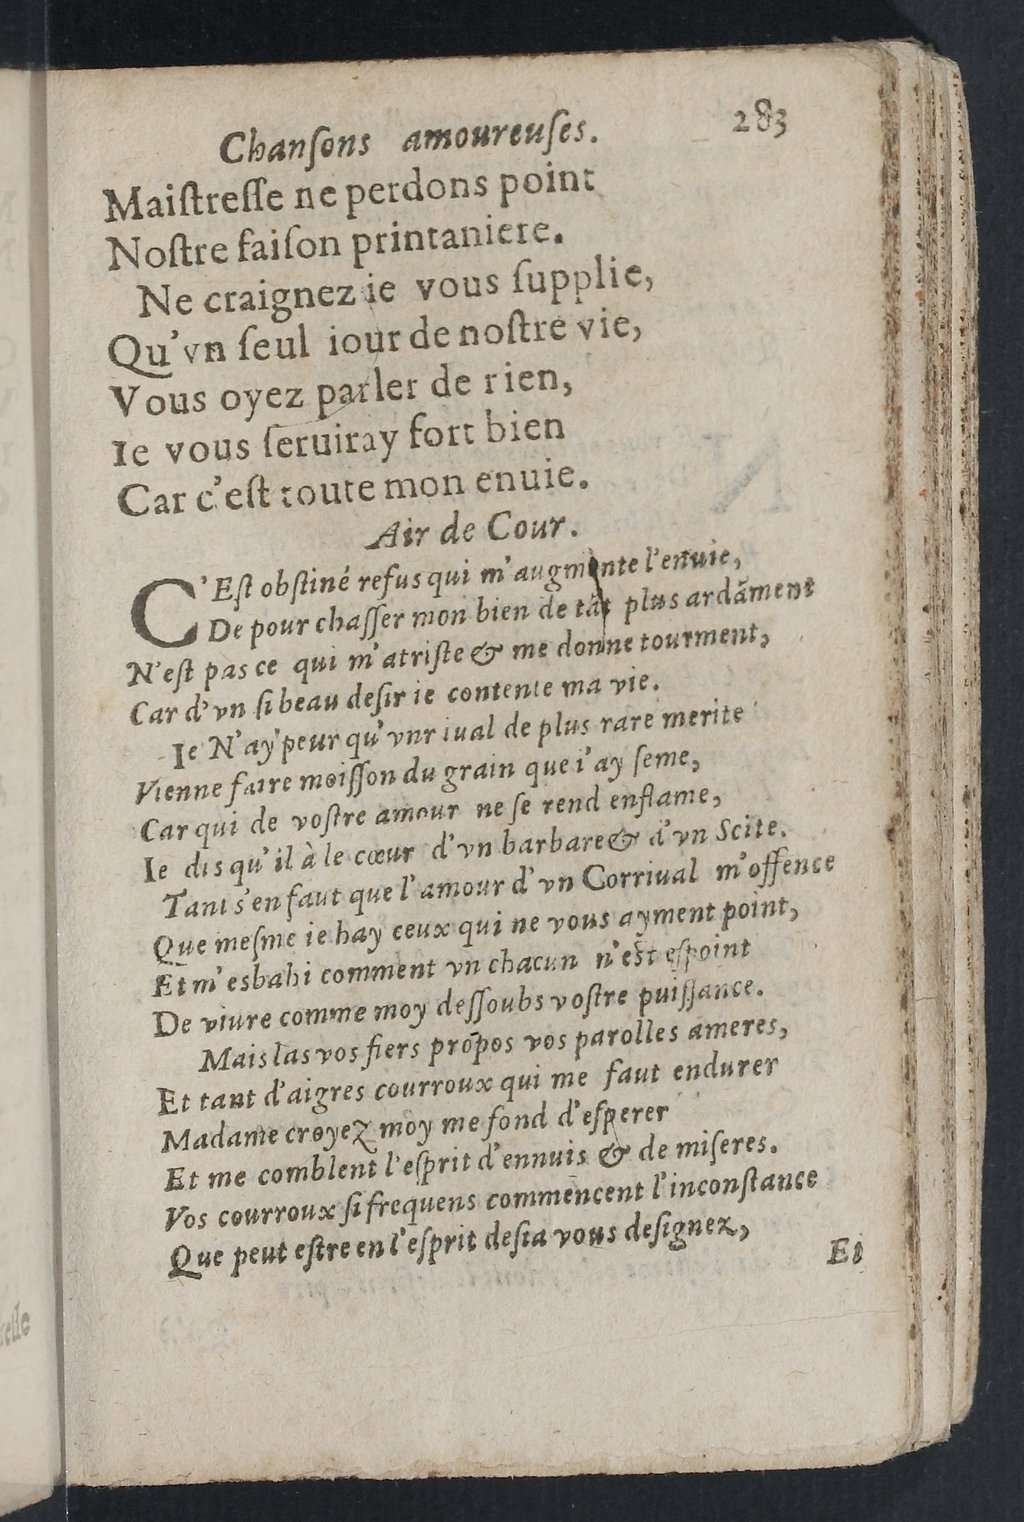 Chanſons amoureuſes. 283
Maiſtreſſe ne perdons point
Noſtre faiſon printaniere.
Ne craignez ie vous ſupplie,
Qu'vn ſeul iour de noſtre vie,
Vous oyez parler de rien,
Ie vous ſeruiray fort bien
Car c'eſt toute mon enuie.
Air de Cour.
C'Eſt obſtiné refus qui m'augmente l'enuie,
De pour chaſſer mon bien de tãt plus ardãment
N'eſt pas ce qui m'atriſte & me donne tourment,
Car d'vn ſi beau deſir ie contente ma vie.
Ie N'ay peur qu'vn riual de plus rare merite
Vienne faire moiſſon du grain que i'ay ſeme,
Car qui de voſtre amour ne ſe rend enflame,
Ie dis qu'il à le cœur d'vn barbare & d'vn Scite.
Tant s'en faut que l'amour d'vn Corriual m'offence
Que meſme ie hay ceux qui ne vous ayment point,
Et m'esbahi comment vn chacun n'eſt eſpoint
De viure comme moy deſſoubs voſtre puiſſance.
Mais las vos fiers propos vos parolles ameres,
Et tant d'aigres courroux qui me faut endurer
Madame croyez moy me fond d'eſperer
Et me comblent l'eſprit d'ennuis & de miſeres.
Vos courroux ſi frequens commencent l'inconſtance
Que peut eſtre en l'eſprit deſia vous deſignez,
Et